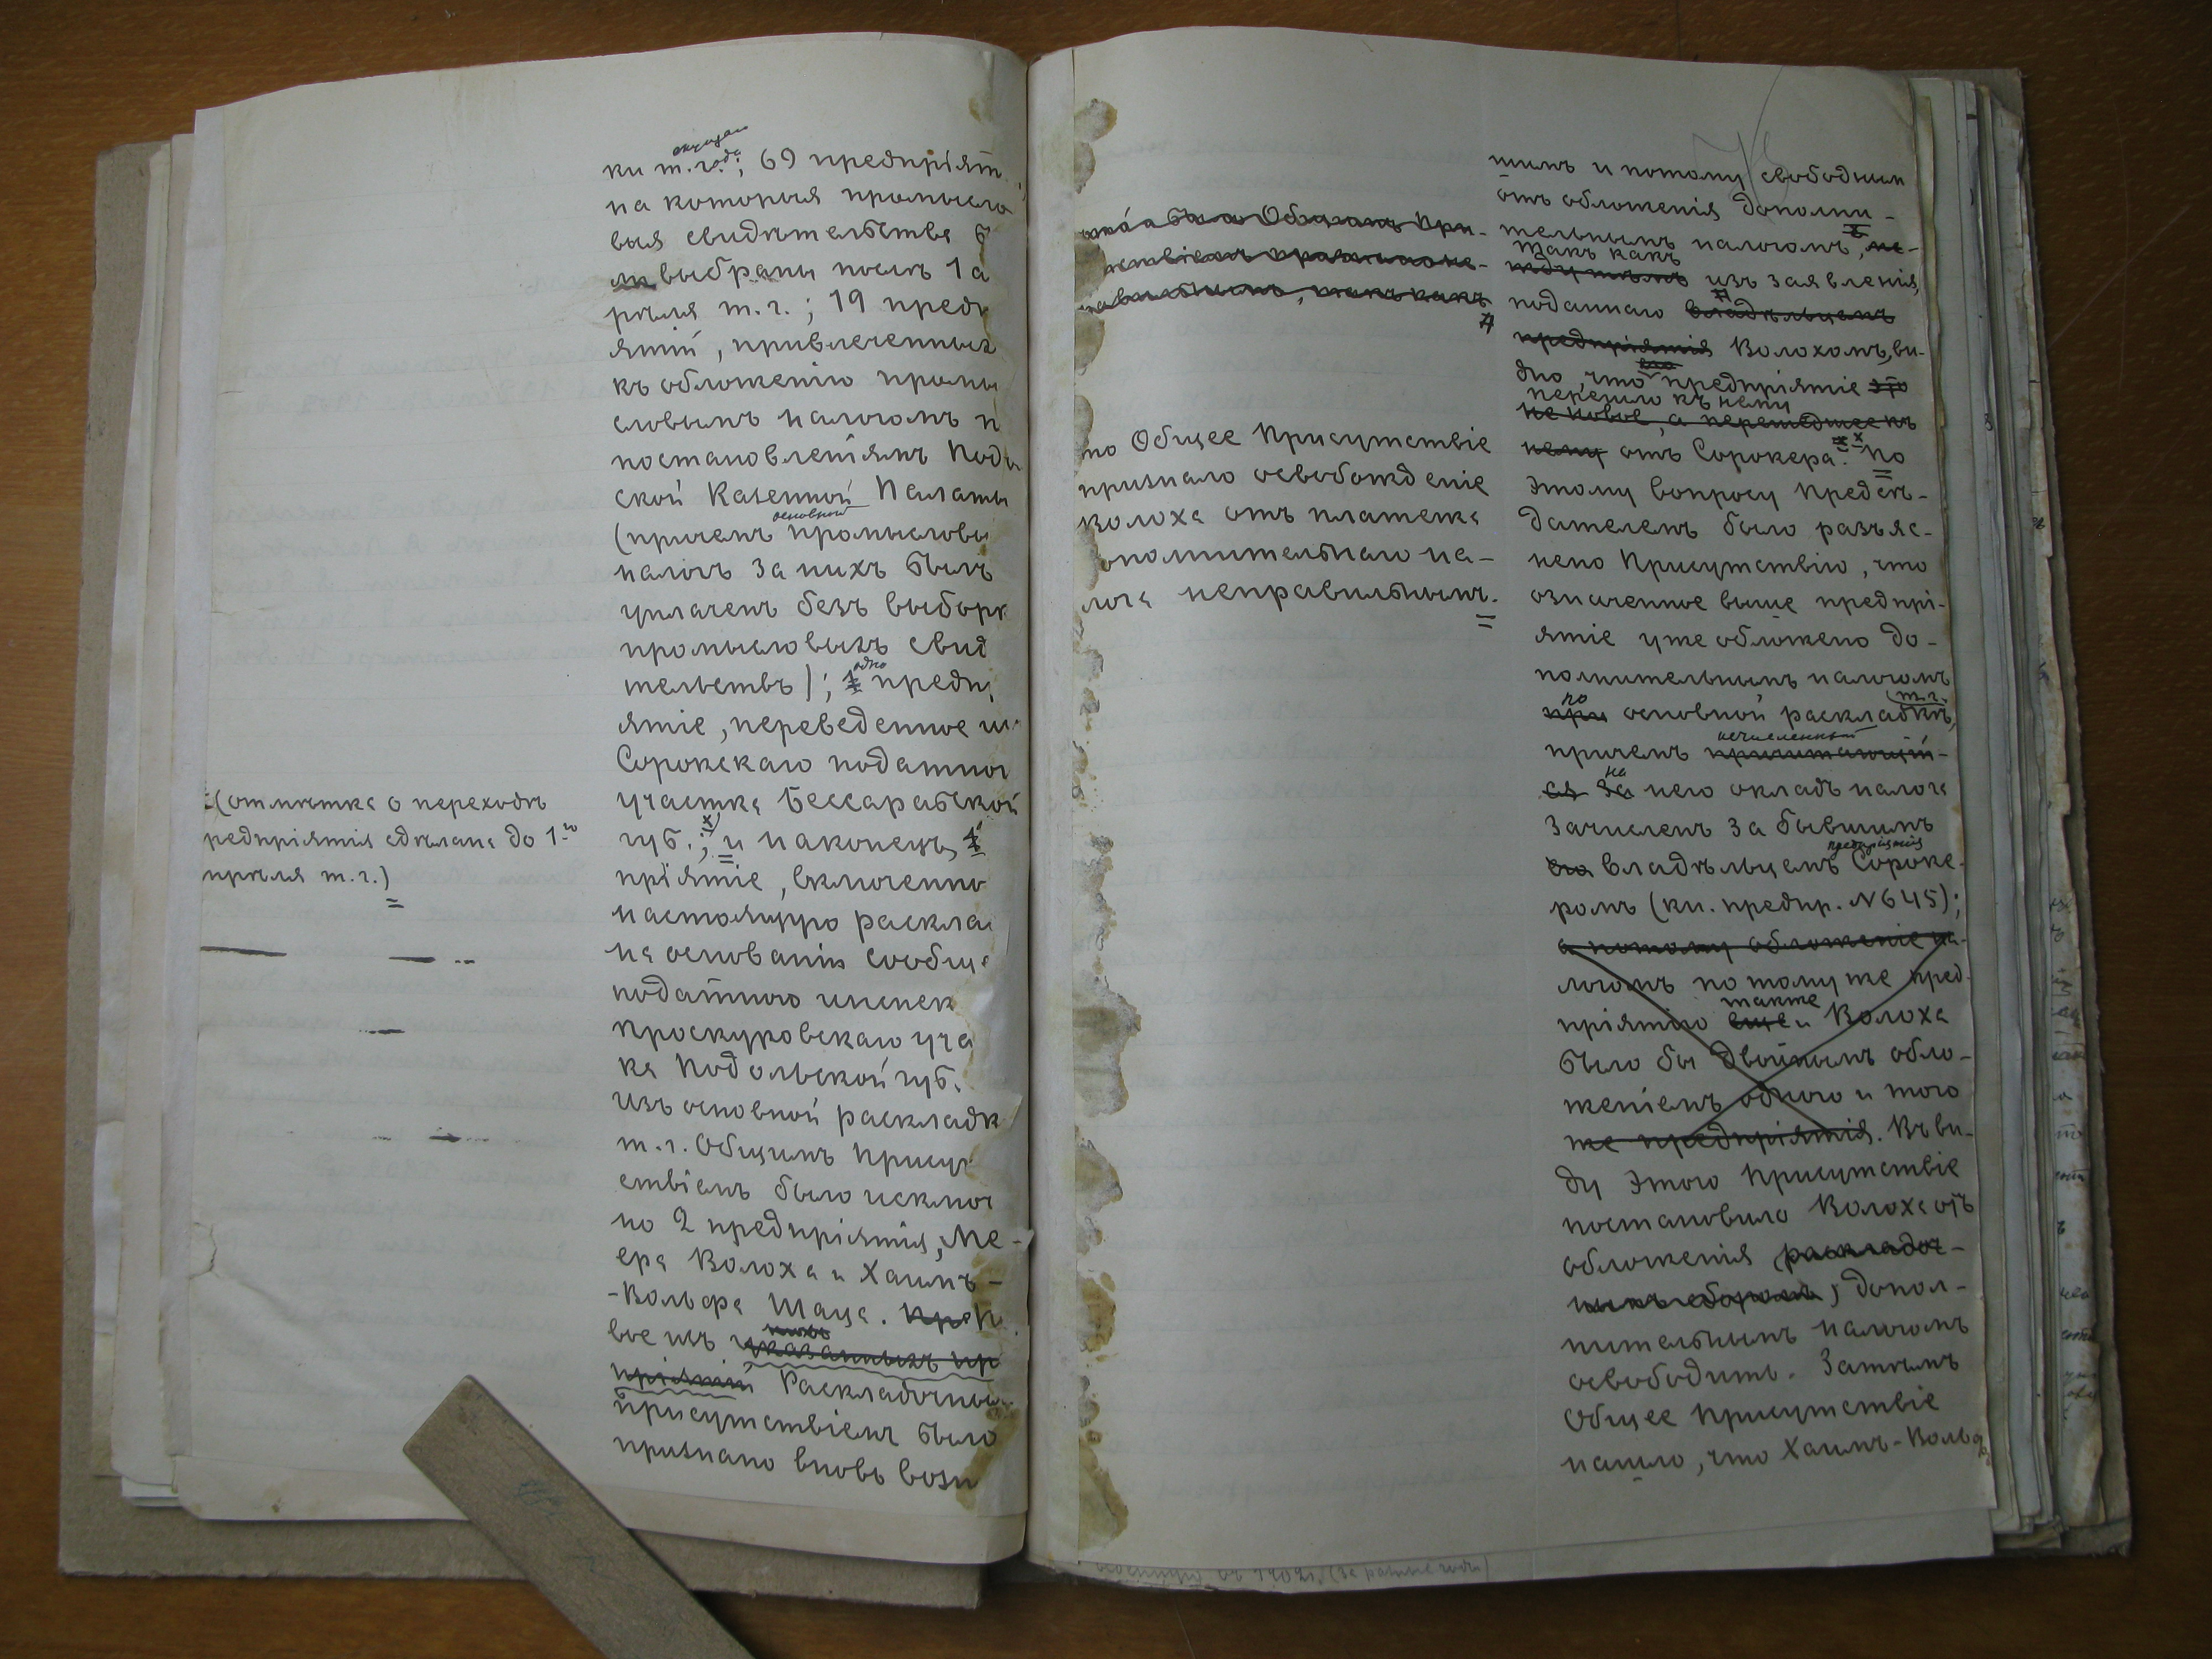 ки т. года; 69 предпріят
на которыя промысло
выя свидѣтельства б
выбраны послѣ 1 а
рѣля т. г.; 19 предп
ятій, привлеченныхъ
къ обложенію промы
словымъ налогомъ п
постановленіямъ Подол
ской Казенной Палаты
основной
(причемъ промысловы
налогъ за нихъ былъ
уплаченъ безъ выборк
промысловыхъ свид
одно
тельствъ); 1 предпр
ятіе, переведенное из
Сорокскаго податног
участка Бессарабской
губ.; и наконецъ, 1
пріятіе, включенно
настоящую расклад
на основаніи сообще
податного инспек
Проскуровскаго уча
ка Подольской губ.
Изъ основной раскладк
т. г. Общимъ Присут
ствіемъ было исключ
но 2 предпріятія, Ме-
ера Волоха и Хаимъ-
-Вольфа Шаца. Пер
вое изъ нихъ указанныхъ пр
пріятій Раскладочны
Присутствіемъ было
признано вновь возн
(отмѣтка о переходѣ
редпріятія сдѣлана до 1-го
прѣля т. г.)
Общимъ При-
сутствіемъ
, такъ какъ
но Общее Присутствіе
признало освобожденіе
Волоха отъ платежа
ополнительнаго на-
лога неправильнымъ.
шимъ и потому свободнымъ
отъ обложенія дополни-
тельнымъ налогомъ, ме-
такъ какъ
жду тѣмъ изъ заявленія,
поданнаго владѣльцемъ
предпріятія Волохомъ, ви-
дно, что его предпріятіе это
перешло къ нему
не новое, а перешедшее къ
нему отъ Сорокера. По
этому вопросу Предсѣ-
дателемъ было разъяс-
нено Присутствію, что
означенное выше предпрі-
ятіе уже обложено до-
полнительнымъ налогомъ
по т. г.
при основной раскладкѣ,
исчисленный
причемъ причитающій-
на
ся за него окладъ налога
зачисленъ за бывшимъ
предпріятія
его владѣльцемъ Сороке-
ромъ (кн. предпр. №645);
а потому обложеніе на-
логомъ по тому же пред-
также
пріятію еще и Волоха
было бы двойнымъ обло-
женіемъ одного и того
же предпріятія. Въ ви-
ду этого Присутствіе
постановило Волоха отъ
обложенія раскладоч-
нымъ сборомъ, допол-
нительнымъ налогомъ
освободить. Затѣмъ
Общее Присутствіе
нашло, что Хаимъ-Вольф